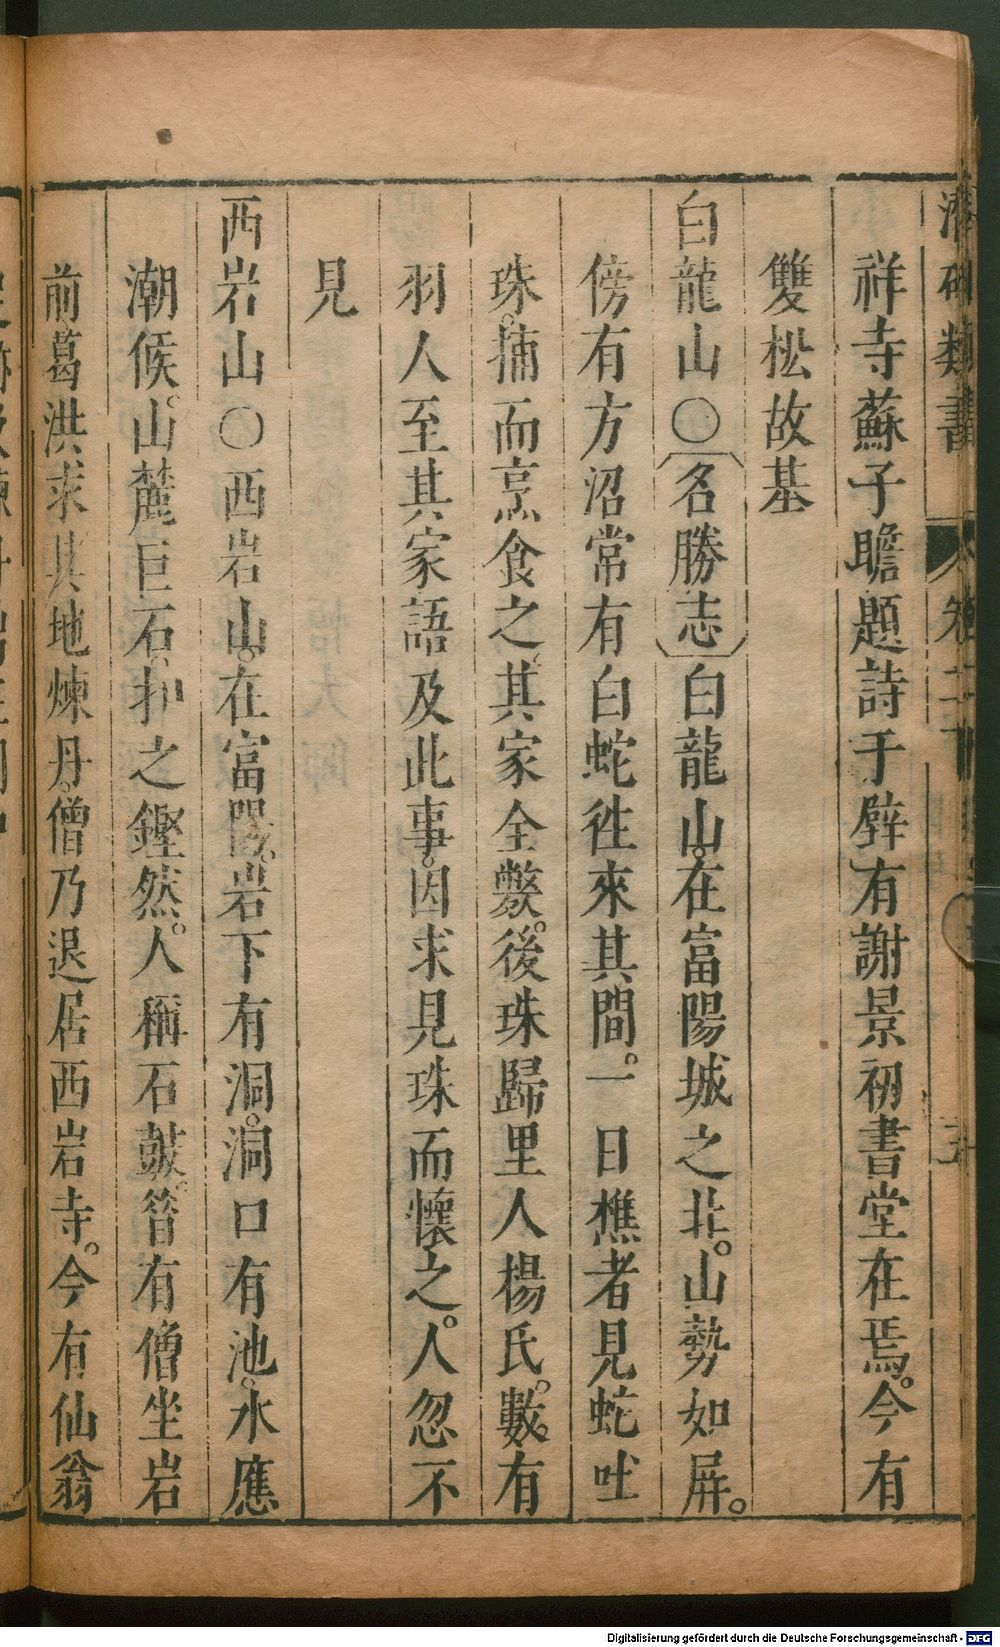 潛确類書 卷二十
祥寺蘇子瞻題詩于壁有謝景初書堂在焉。今有
雙松故基
白龍山○〔名勝志〕白龍山。在富陽城之北。山勢如屏。
傍有方沼常有白蛇徃來其間。一日樵者見蛇吐
珠。捕而烹食之。其家全斃。後珠歸里人楊氏。數。有
羽人至其家語及此事。因求見珠而懷之。人忽不
見
西岩山○西岩山。在富陽。岩下有洞。洞口有池。水應
潮候。山麓巨石。扣之鏗然。人稱石鼓。昔有僧坐岩
前。葛洪求其地煉丹。僧乃退居西岩寺。今有仙翁
Digitalisierung gefördert durch die Deutsche Forschungsgemeinschaft - DFG